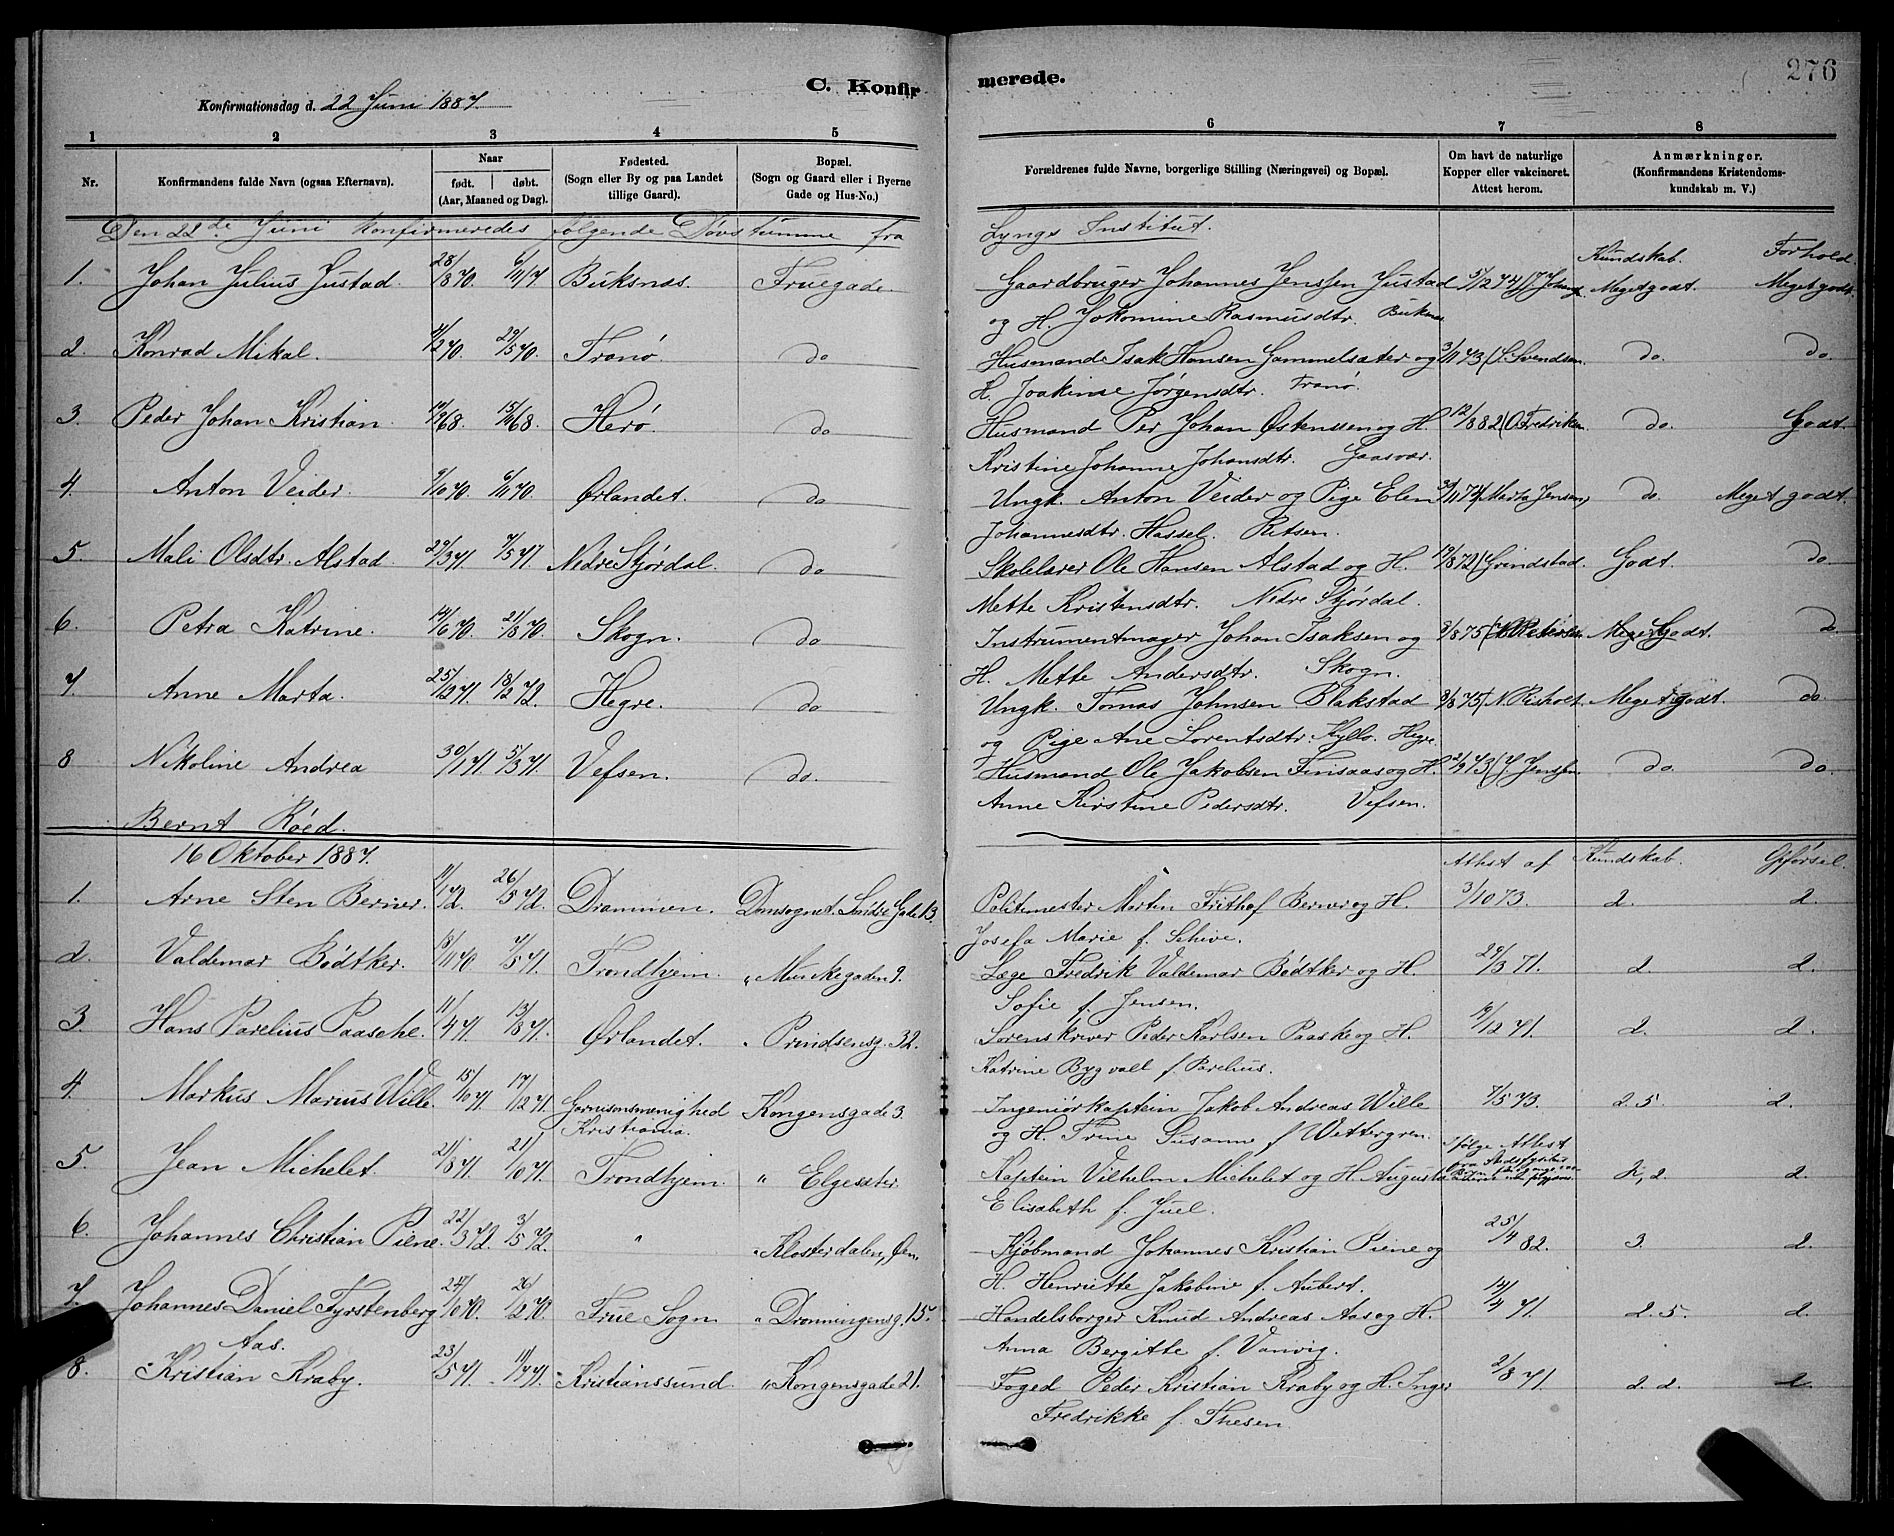 276
C. Konfirmerede.
Konfirmationsdag d. 22 Juni 1887.
1 2 3 4 5 6 7 8
Nr.
Konfirmandens fulde Navn (ogsaa Efternavn).
Naar
født. døbt.
(Aar, Maaned og Dag).
Fødested.
(Sogn eller By og paa Landet
tillige Gaard).
Bopæl.
(Sogn og Gaard eller i Byerne
Gade og Hus-No.)
Forældrenes fulde Navne, borgerlige Stilling (Næringsvei) og Bopæl.
Om havt de naturlige
Kopper eller vakcineret.
Attest herom.
Anmærkninger.
(Konfirmandens Kristendoms-
kundskab m. V.)
Den 22de Juni Konfirmeredes følgende Døvstumme fra Lyngs Institut.
Kundskab. Forhold.
1. Johan Julius Justad. 28/8 70. Buksnæs. Fruegade Gaardbruger Johannes Jenssen Justad Meget godt. Meget godt.
og H. Jokomine Rasmusdtr. Buksnæs
2. Konrad Mikal. 29/5 70. Tranø. do Husmand Isak Hansen Gammelsæter og (S. Svendsen do. do.
H. Joakine Jørgensdtr. Tranø.
3. Peder Johan Kristian. Herø. do Husmand Per Johan Østenssen og H. 12/8 82 do. Godt.
Kristine Johanne Johansdtr. Gaasvær.
4. Anton Veider. 9/10 70. 6/11 70. Ørlandet. do Ungk. Anton Veider og Pige Elen do. Meget godt.
Johannesdtr. Hassel. Ritsen.
5. Mali Olsdtr. Alstad. 29/3 71. 7/5 71. Nedre Stjørdal. do Skolelærer Ole Hansen Alstad og H. 19/8 72 (Grindstad. Godt. do
Mette Kristensdtr. Nedre Stjørdal.
6. Petra Katrine. 19/6 70. 21/8 70. Skogn. do Instrumentmager Johan Isaksen og 8/8 75 Meget Godt. do
H. Mette Andersdtr. Skogn.
7. Anne Marta. 25/12 71. 18/2 72. Hegre. do Ungk. Tomas Johnsen Blakstad 8/8 75 (N. Risholt. Meget godt. do
og Pige Ane Lorentsdtr. Kyllo. Hegre.
8 Nikoline Andrea 30/1 71. 5/3 71. Vefsen. do. Husmand Ole Jakobsen Finsaas og H. (J. Jensen. do. do.
Anne Kirstine Pedersdtr. Vefsen.
Bernt Röed.
16 Oktober 1887. Attest af Kundskab. Opførsel.
1. Arne Sten Berner. 11/1 72. 26/5 72. Drammen. Domsognet. Søndre Gade 13. Politimester Morten Frithof Berner og H. 3/10 73. 2. 2.
Josefa Marie f. Schive.
2. Valdemar Bødtker. 18/11 70 7/5 71. Trondhjem. " Munkegaden 9. Læge Fredrik Valdemar Bødtker og H. 29/3 71. 2. 2.
Sofie f. Jensen.
3. Hans Parelius Paasche. 11/4 71. 13/8 71. Ørlandet. " Prindsensg. 32. Sorenskriver Peder Karlsen Paaske og H. 19/12 71. 2. 2.
Katrine Bygvall f. Parelius.
4. Markus Marius Wille. 15/10 71. 17/12 71. Garnisonsmenighed Kongensgade 3. Ingeniørkaptein Jakob Andreas Wille 7/5 73. 2.5. 2.
Kristiania. og H. Trine Susanne f Wettergren.
5. Jean Michelet. 21/8 71. 21/10 71. Trondhjem. " Elgesæter. Kaptein Vilhelm Michelet og H. Augusta ifølge Attest 2. 2.
Elisabeth f. Juel.
6. Johannes Christian Piene. 22/3 72. 3/5 72. " " Klosterdalen, Øen. Kjøbmand Johannes Kristian Piene og 25/4 82. 3. 2.
H. Henriette Jakobine f. Aubert.
7. Johannes Daniel Fyrstenberg 24/10 70. 26/12 70. Frue Sogn " Dronningensg. 15. Handelsborger Knud Andreas Aas og H. 14/4 71. 2.5. 2.
Aas. Anna Bergitte f. Vanvig.
8. Kristian Kraby. 23/5 71. 11/7 71. Kristianssund. " Kongensgade 21. Foged Peder Kristian Kraby og H. Inger 2/8 71. 2. 2. 2
Fredrikke f. Thesen.